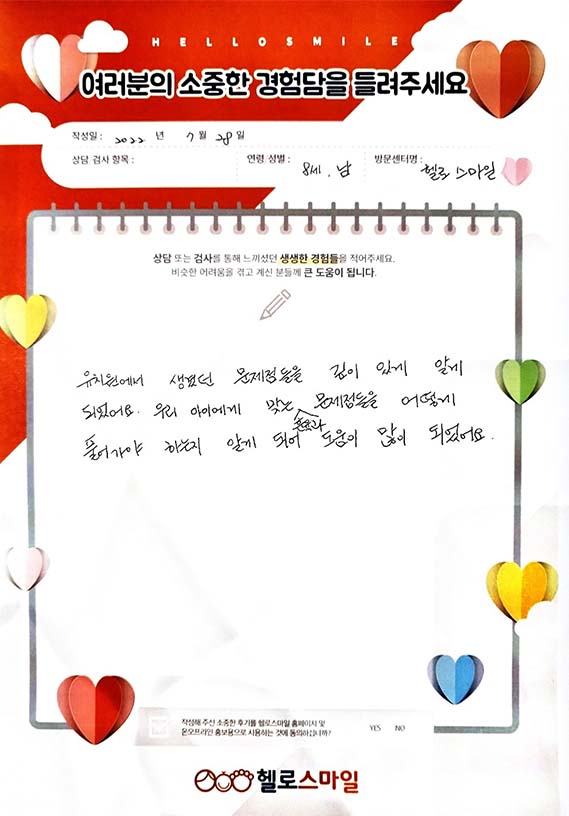 HELLOSMILE
여러분의 소중한 경험담을 들려주세요
작성일 : 2022 년 7 월 28 일
상담 검사 항목 : 연령 성별 : 8세 . 남 방문센터명 : 헬로 스마일
상담 또는 검사를 통해 느끼셨던 생생한 경험들을 적어주세요.
비슷한 어려움을 겪고 계신 분들께 큰 도움이 됩니다.
유치원에서 생겼던 문제점들을 깊이 있게 알게
되었어요. 우리 아이에게 맞는 문제점들을 어떻게
풀어가야 하는지 알게 되어 도움이 많이 되었어요.
작성해 주신 소중한 후기를 헬로스마일 홈페이지 및
온오프라인 홍보용으로 사용하는 것에 동의하십니까? YES NO
헬로스마일